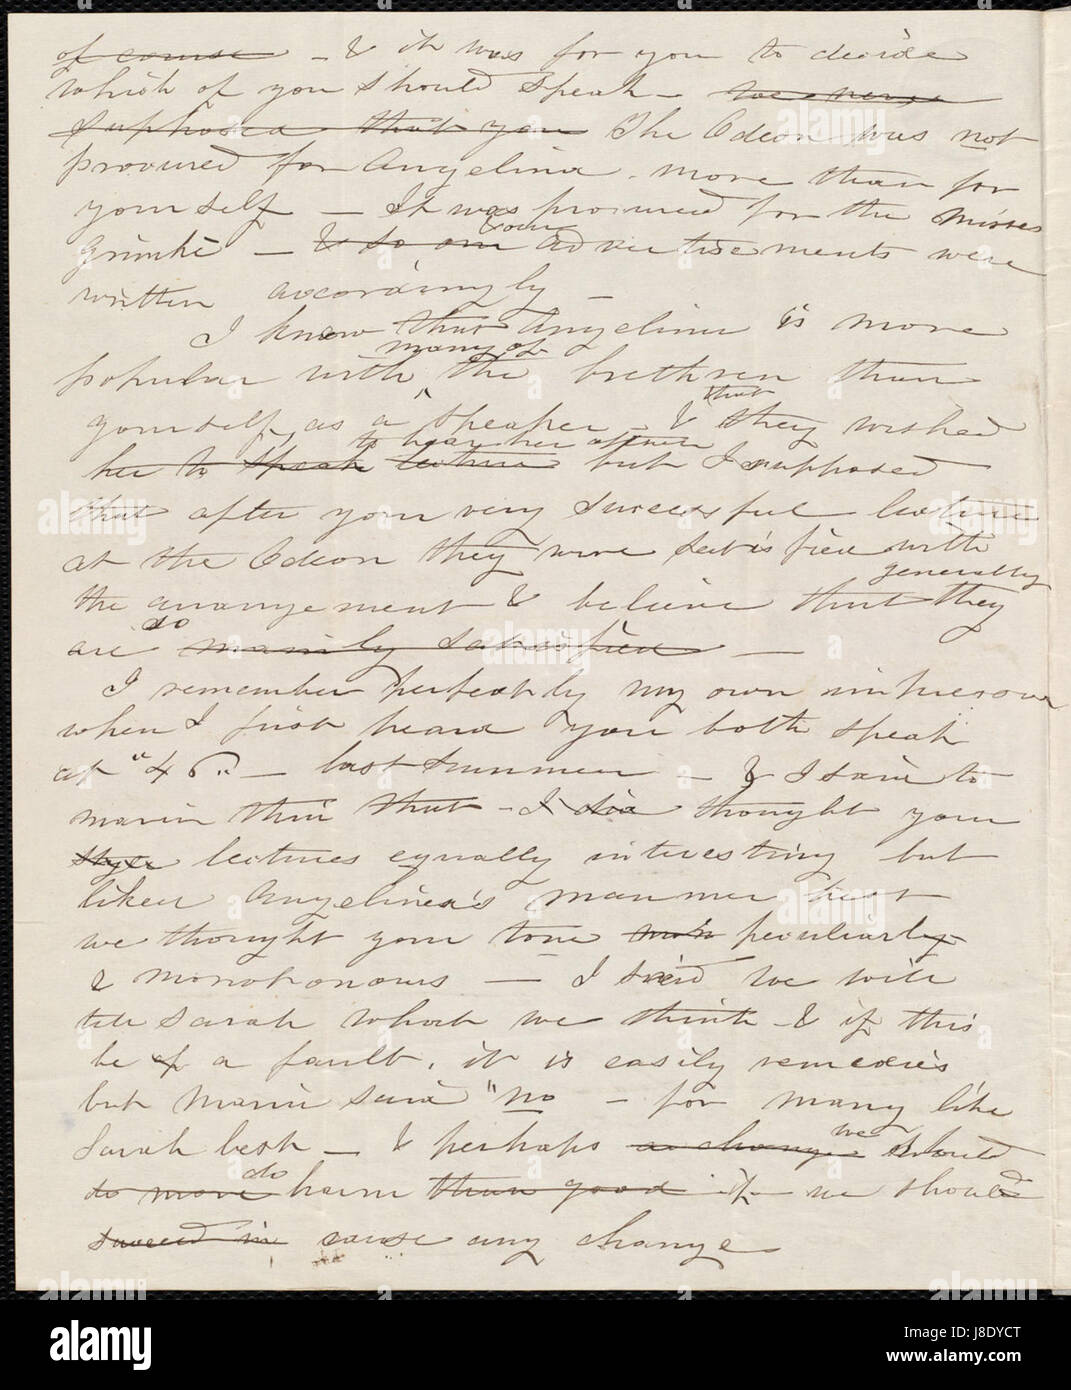 of course – & it was for you to decide
which of you should speak – we never
supposed that you The Odeon was not
procured for Angelina more than for
yourself – It was procured for the Misses
& our
Grimké – & so our advertisements were
written accordingly –
I know that Angelina is more
many of
popular with the brethren than
that
yourself, as a speaker – & they wished
to hear her often
her to speak lecture but I supposed
that after your very successful lecture
at the Odeon they were satisfied with
generally
the arrangement & believe that they
do
are mainly satisfied –
I remember perfectly my own impression
when I first heard you both speak
at "46" – last summer – & I said to
Maria then that – I did thought your
style lectures equally interesting but
liked Angelina's manner best
we thought your tone peculiarly
& monotonous – I said we will
tell Sarah what we think & if this
be of a fault, it is easily remedied
but Maria said "no – for many like
we
Sarah best – & perhaps a change should
do
do more harm than good if we should
succeed in cause any change
alamy
Image ID: J8DYCT
www.alamy.com